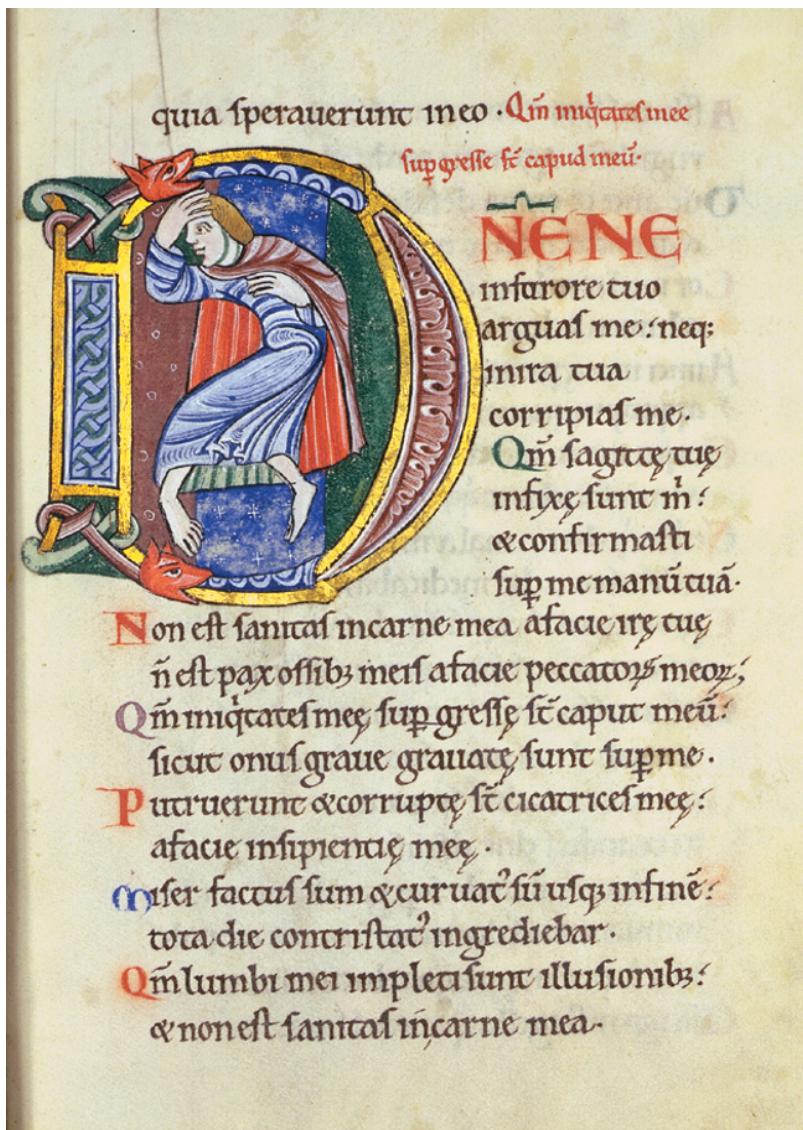 quia sperauerunt in eo · Qm̄ iniq̇tates mee
sup̱gresse st̄ capud meū·
DNE NE
in furore tuo
arguas me : neq:
in ira tua
corripias me·
Qm̄ sagittę tuę
infixę sunt m̄ :
& confirmasti
sup̱ me manū tuā·
Non est sanitas in carne mea a facie irę tuę
n̄ est pax ossibꝫ meis a facie peccatoꝝ meoꝝ;
Qm̄ iniq̇tates meę sup̱gressę st̄ caput meū:
sicut onus graue grauatę sunt sup̱ me·
Putruerunt & corruptę st̄ cicatrices meę:
a facie insipientię meę·
Miser factus sum & curuatꝰ sū usqꝫ in finē:
tota die contristatꝰ ingrediebar·
Qm̄ lumbi mei impleti sunt illusionibꝫ:
& non est sanitas in carne mea·